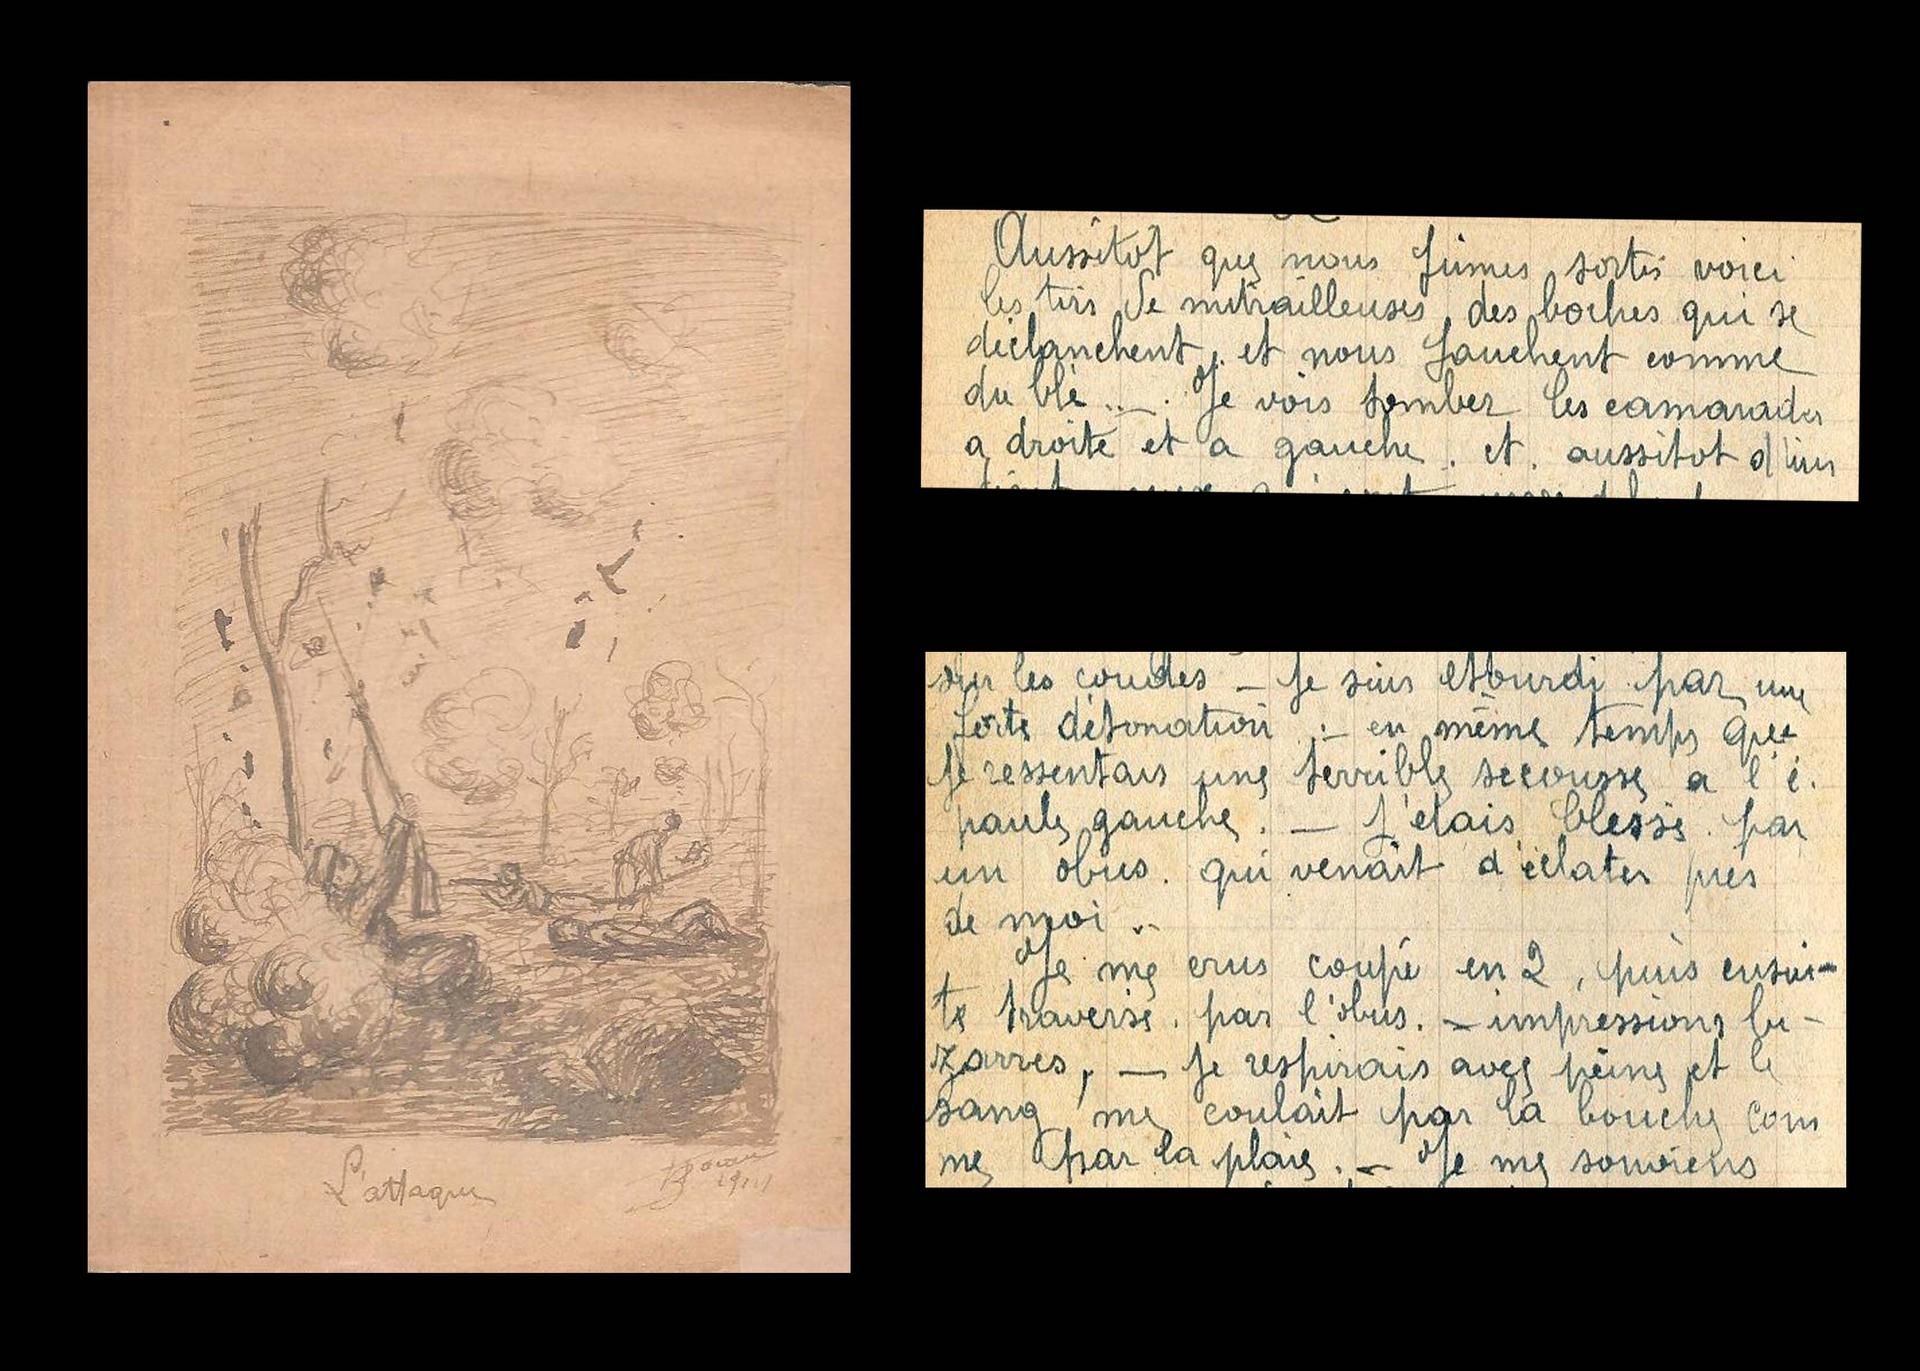 L'attaque
Aussitot que nous fumes sortis voici
les tirs de mitrailleuses des boches qui se
déclanchent, et nous fauchent comme
du blé ... Je vois tomber les camarades
a droite et a gauche. et. aussitot d'un
sur les coudes – Je suis etourdi par une
forte détonation .– en même temps que
je ressentais une terrible secousse a l'é.
paule gauche. – J'etais blessé par
un obus. qui venait d'éclater près
de moi ..
Je me crus coupé en 2, puis ensui-
te traversé. par l'obus. – impressions bi-
zarres, – je respirais avec peine et le
sang me coulait par la bouche com
me par la plaie. – Je me souviens